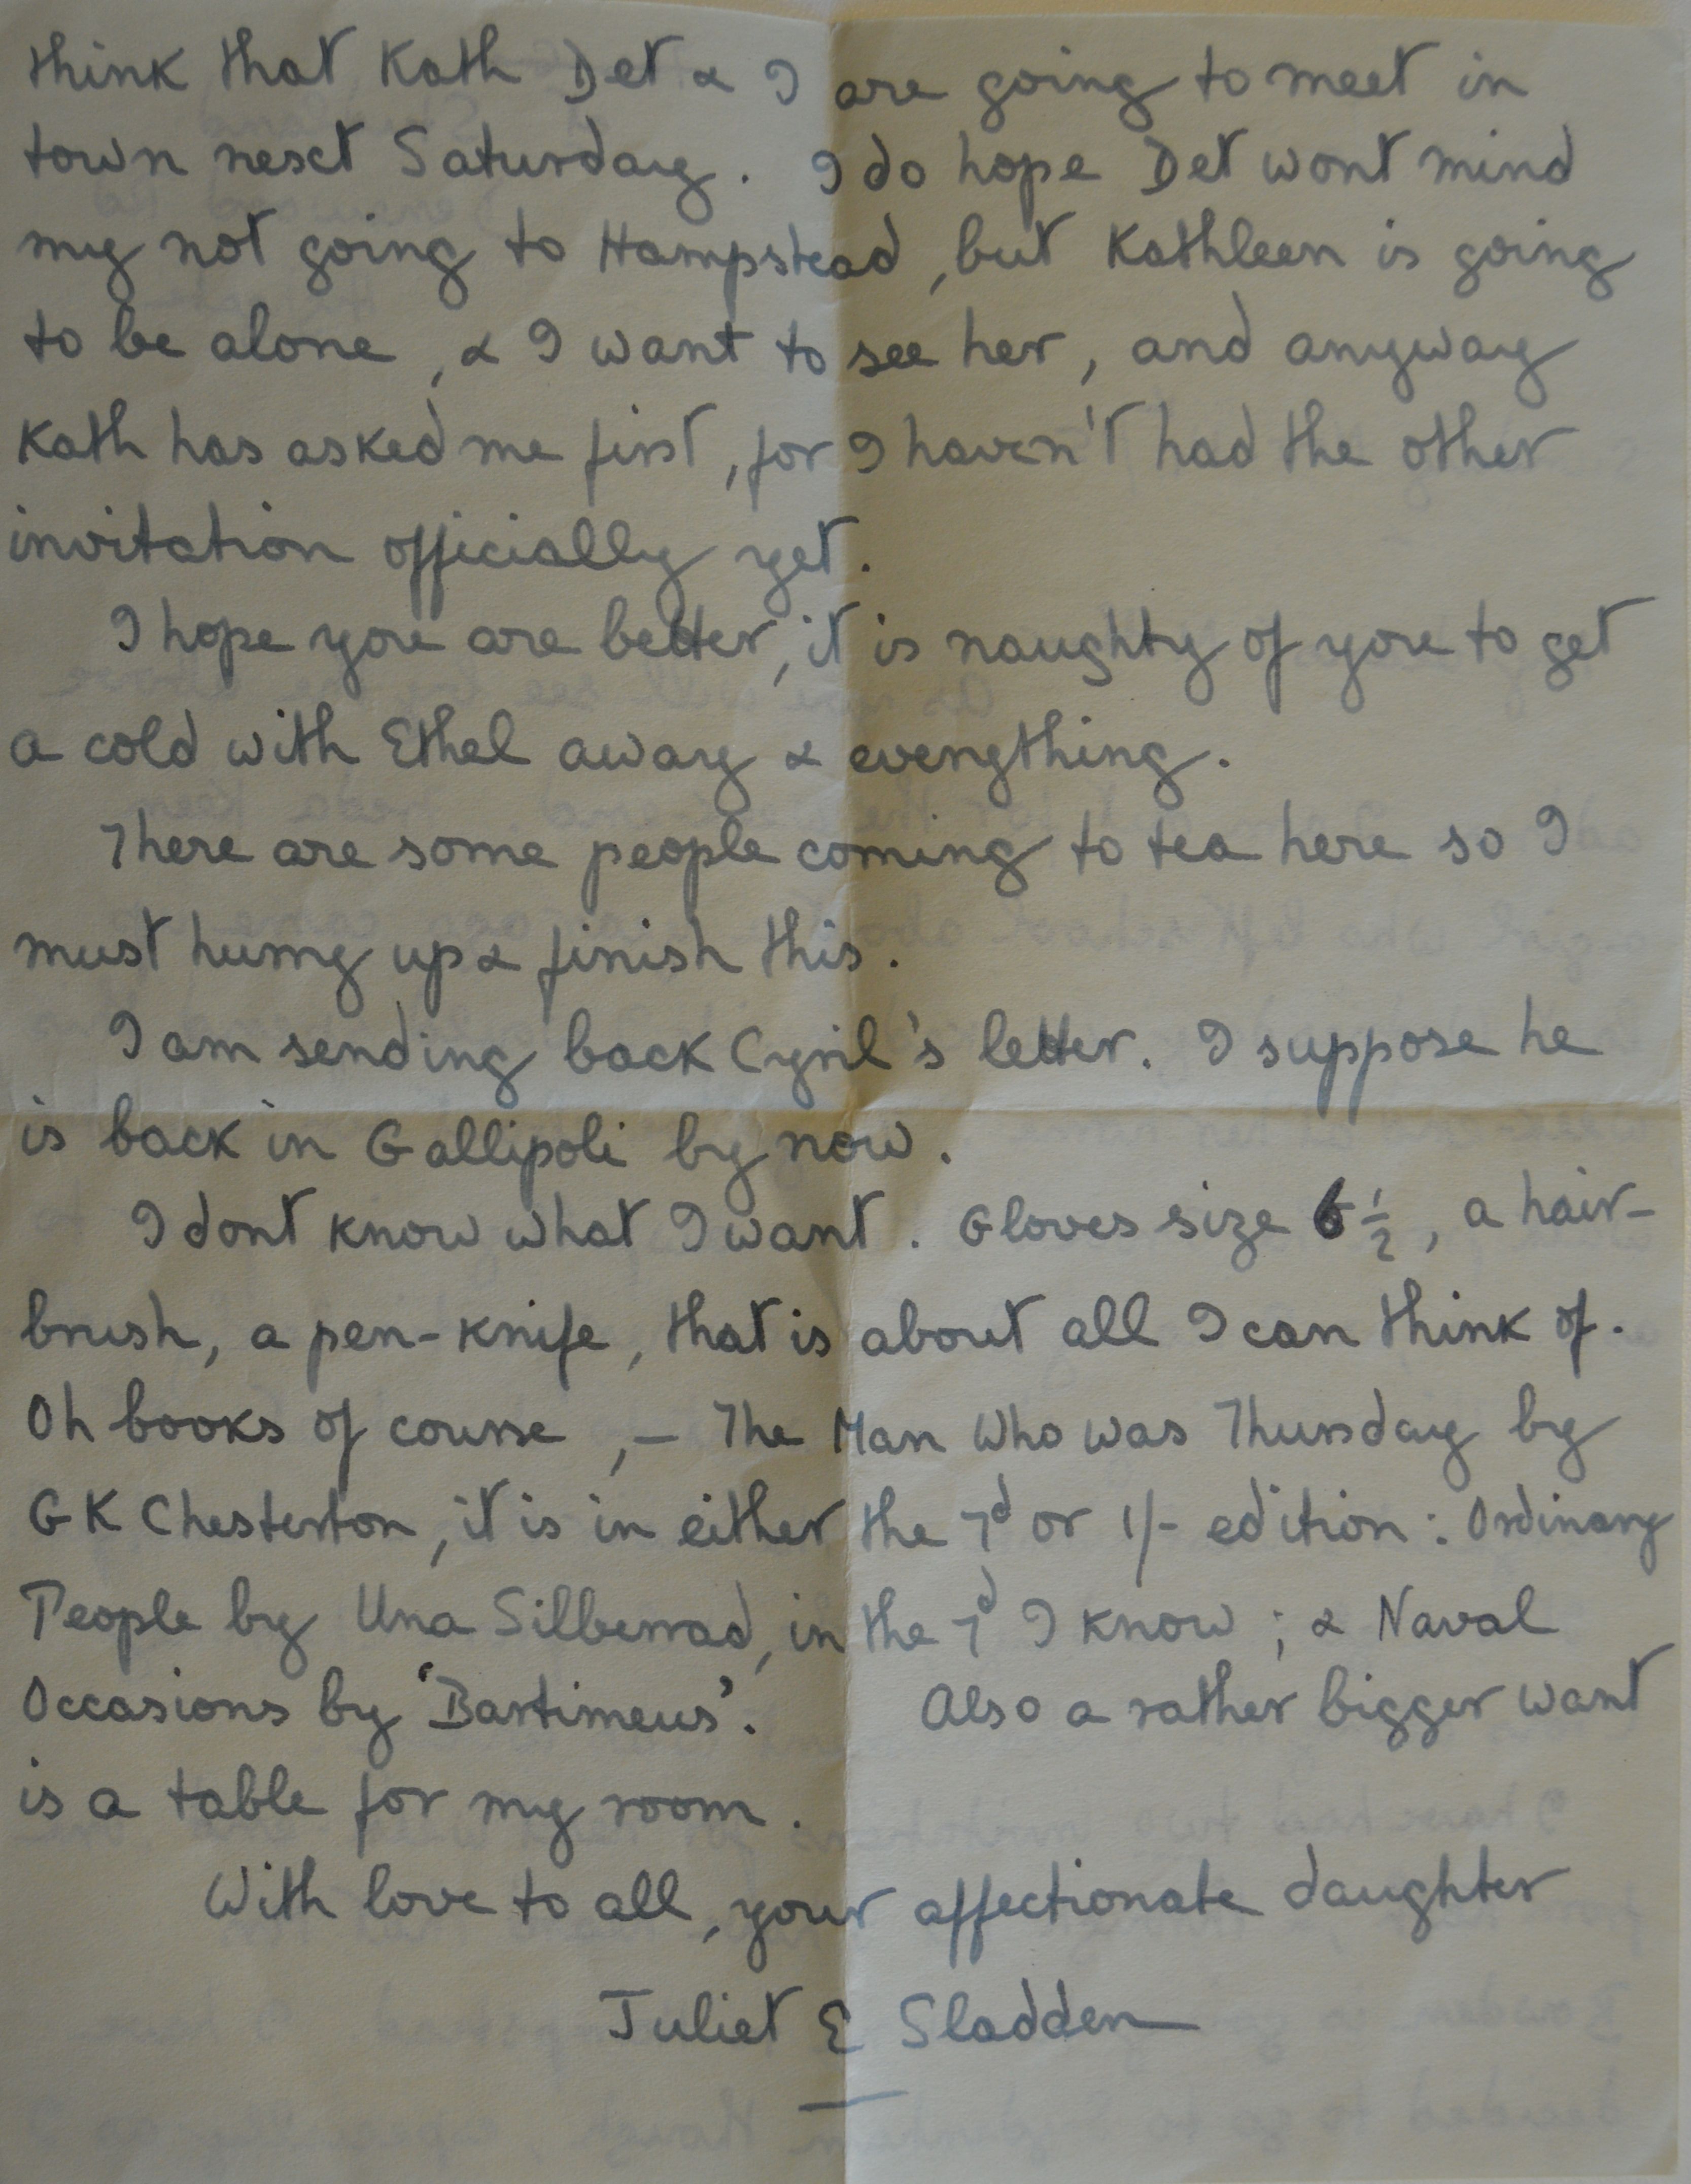 think that Kath Det & I are going to meet in
town next Saturday. I do hope Det wont mind
my not going to Hampstead, but Kathleen is going
to be alone, & I want to see her, and anyway
Kath has asked me first, for I haven't had the other
invitation officially yet.
I hope you are better, it is naughty of you to get
a cold with Ethel away & everything.
There are some people coming to tea here so I
must hurry up & finish this.
I am sending back Cyril's letter. I suppose he
is back in Gallipoli by now.
I dont know what I want. Gloves size 6½, a hair-
brush, a pen-knife, that is about all I can think of.
Oh books of course, — The Man Who was Thursday by
G K Chesterton, it is in either the 7d or 1/- edition: Ordinary
People by Una Silberrad, in the 7d I know; & Naval
Occasions by 'Bartimeus'. Also a rather bigger want
is a table for my room.
With love to all, your affectionate daughter
Juliet E Sladden